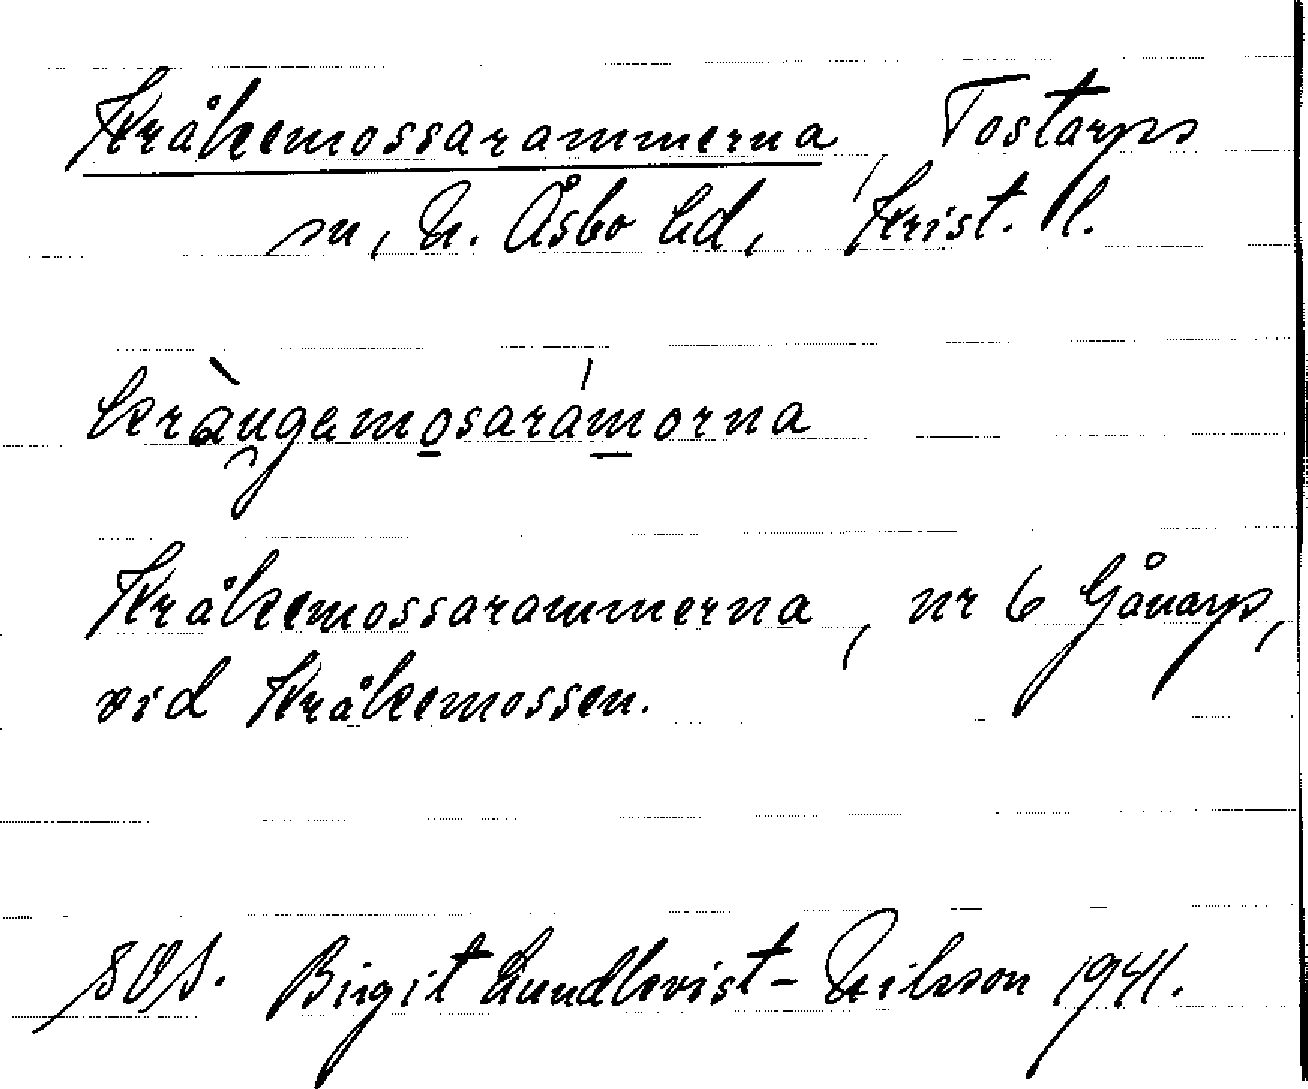 Kråkemossarammerna, Tostarps
sn, N. Åsbo hd, Krist. l.
kràu̯gamo̲sarám̲orna
Kråkemossarammerna, nr 6 Gånarp,
vid Kråkemossen.
SOS. Birgit Lundkvist-Nilsson 1941.